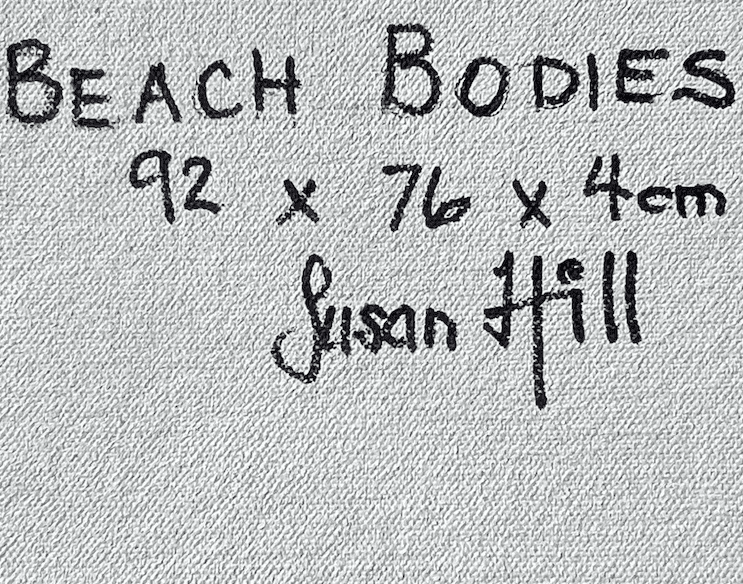 BEACH BODIES
92 x 76 x 4cm
Susan Hill